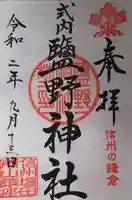 奉拝
信州の鎌倉
式内
鹽野神社
令和二年九月十三日